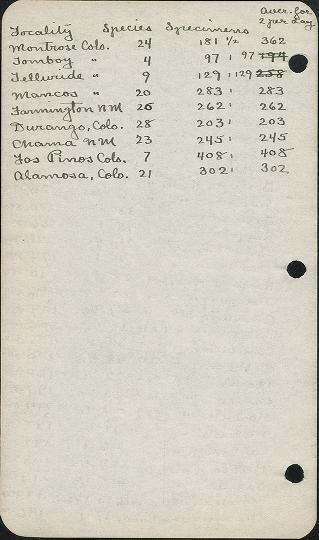 Aver. for
Locality Species Specimens 2 per day
Montrose Colo. 24 181 1/2 362
Tomboy " 4 97 1 97 194
Telluride " 9 129 1 129 258
Mancos " 20 283 1 283
Farmington NM 26 262 1 262
Durango, Colo. 28 203 1 203
Chama NM 23 245 1 245
Los Pinos Colo. 7 408 1 408
Alamosa, Colo. 21 302 1 302